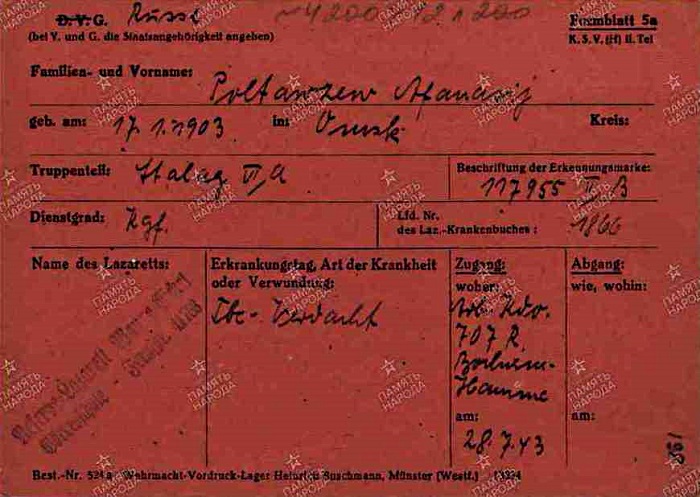 D. V. G. Russe
Formblatt 5a
(bei V. und G. die Staatsangehörigkeit angeben)
K. S. V. (H) II. Teil
Familien- und Vorname: Poltawzew Afanasij
geb. am: 17.1.1903 in: Omsk Kreis:
Truppenteil: Stalag VI/A
Beschriftung der Erkennungsmarke:
117955 II B
Dienstgrad: Kgf.
Lfd. Nr.
des Laz.-Krankenbuches: 1866
Name des Lazaretts:
Erkrankungstag, Art der Krankheit
oder Verwundung:
Tbc-Verdacht
Zugang:
woher:
Arb. Kdo.
707 R.
Bochum-
Hamme
am:
28.7.43
Abgang:
wie, wohin:
am:
Reserve-Lazarett
Best.-Nr. 524a Wehrmacht-Vordruck-Lager Heinrich Buschmann, Münster (Westf.)
ПАМЯТЬ
НАРОДА